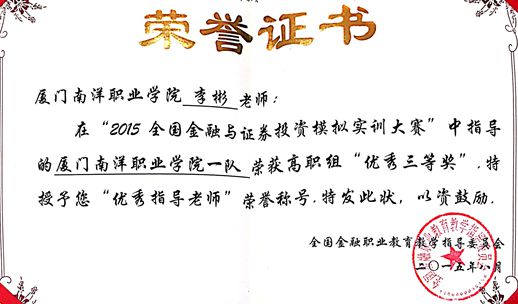 荣誉证书
厦门南洋职业学院 李彬 老师：
在“2015全国金融与证券投资模拟实训大赛”中指导
的厦门南洋职业学院一队荣获高职组“优秀三等奖”，特
授予您“优秀指导老师”荣誉称号，特发此状，以资鼓励。
全国金融职业教育教学指导委员会
二〇一五年 月